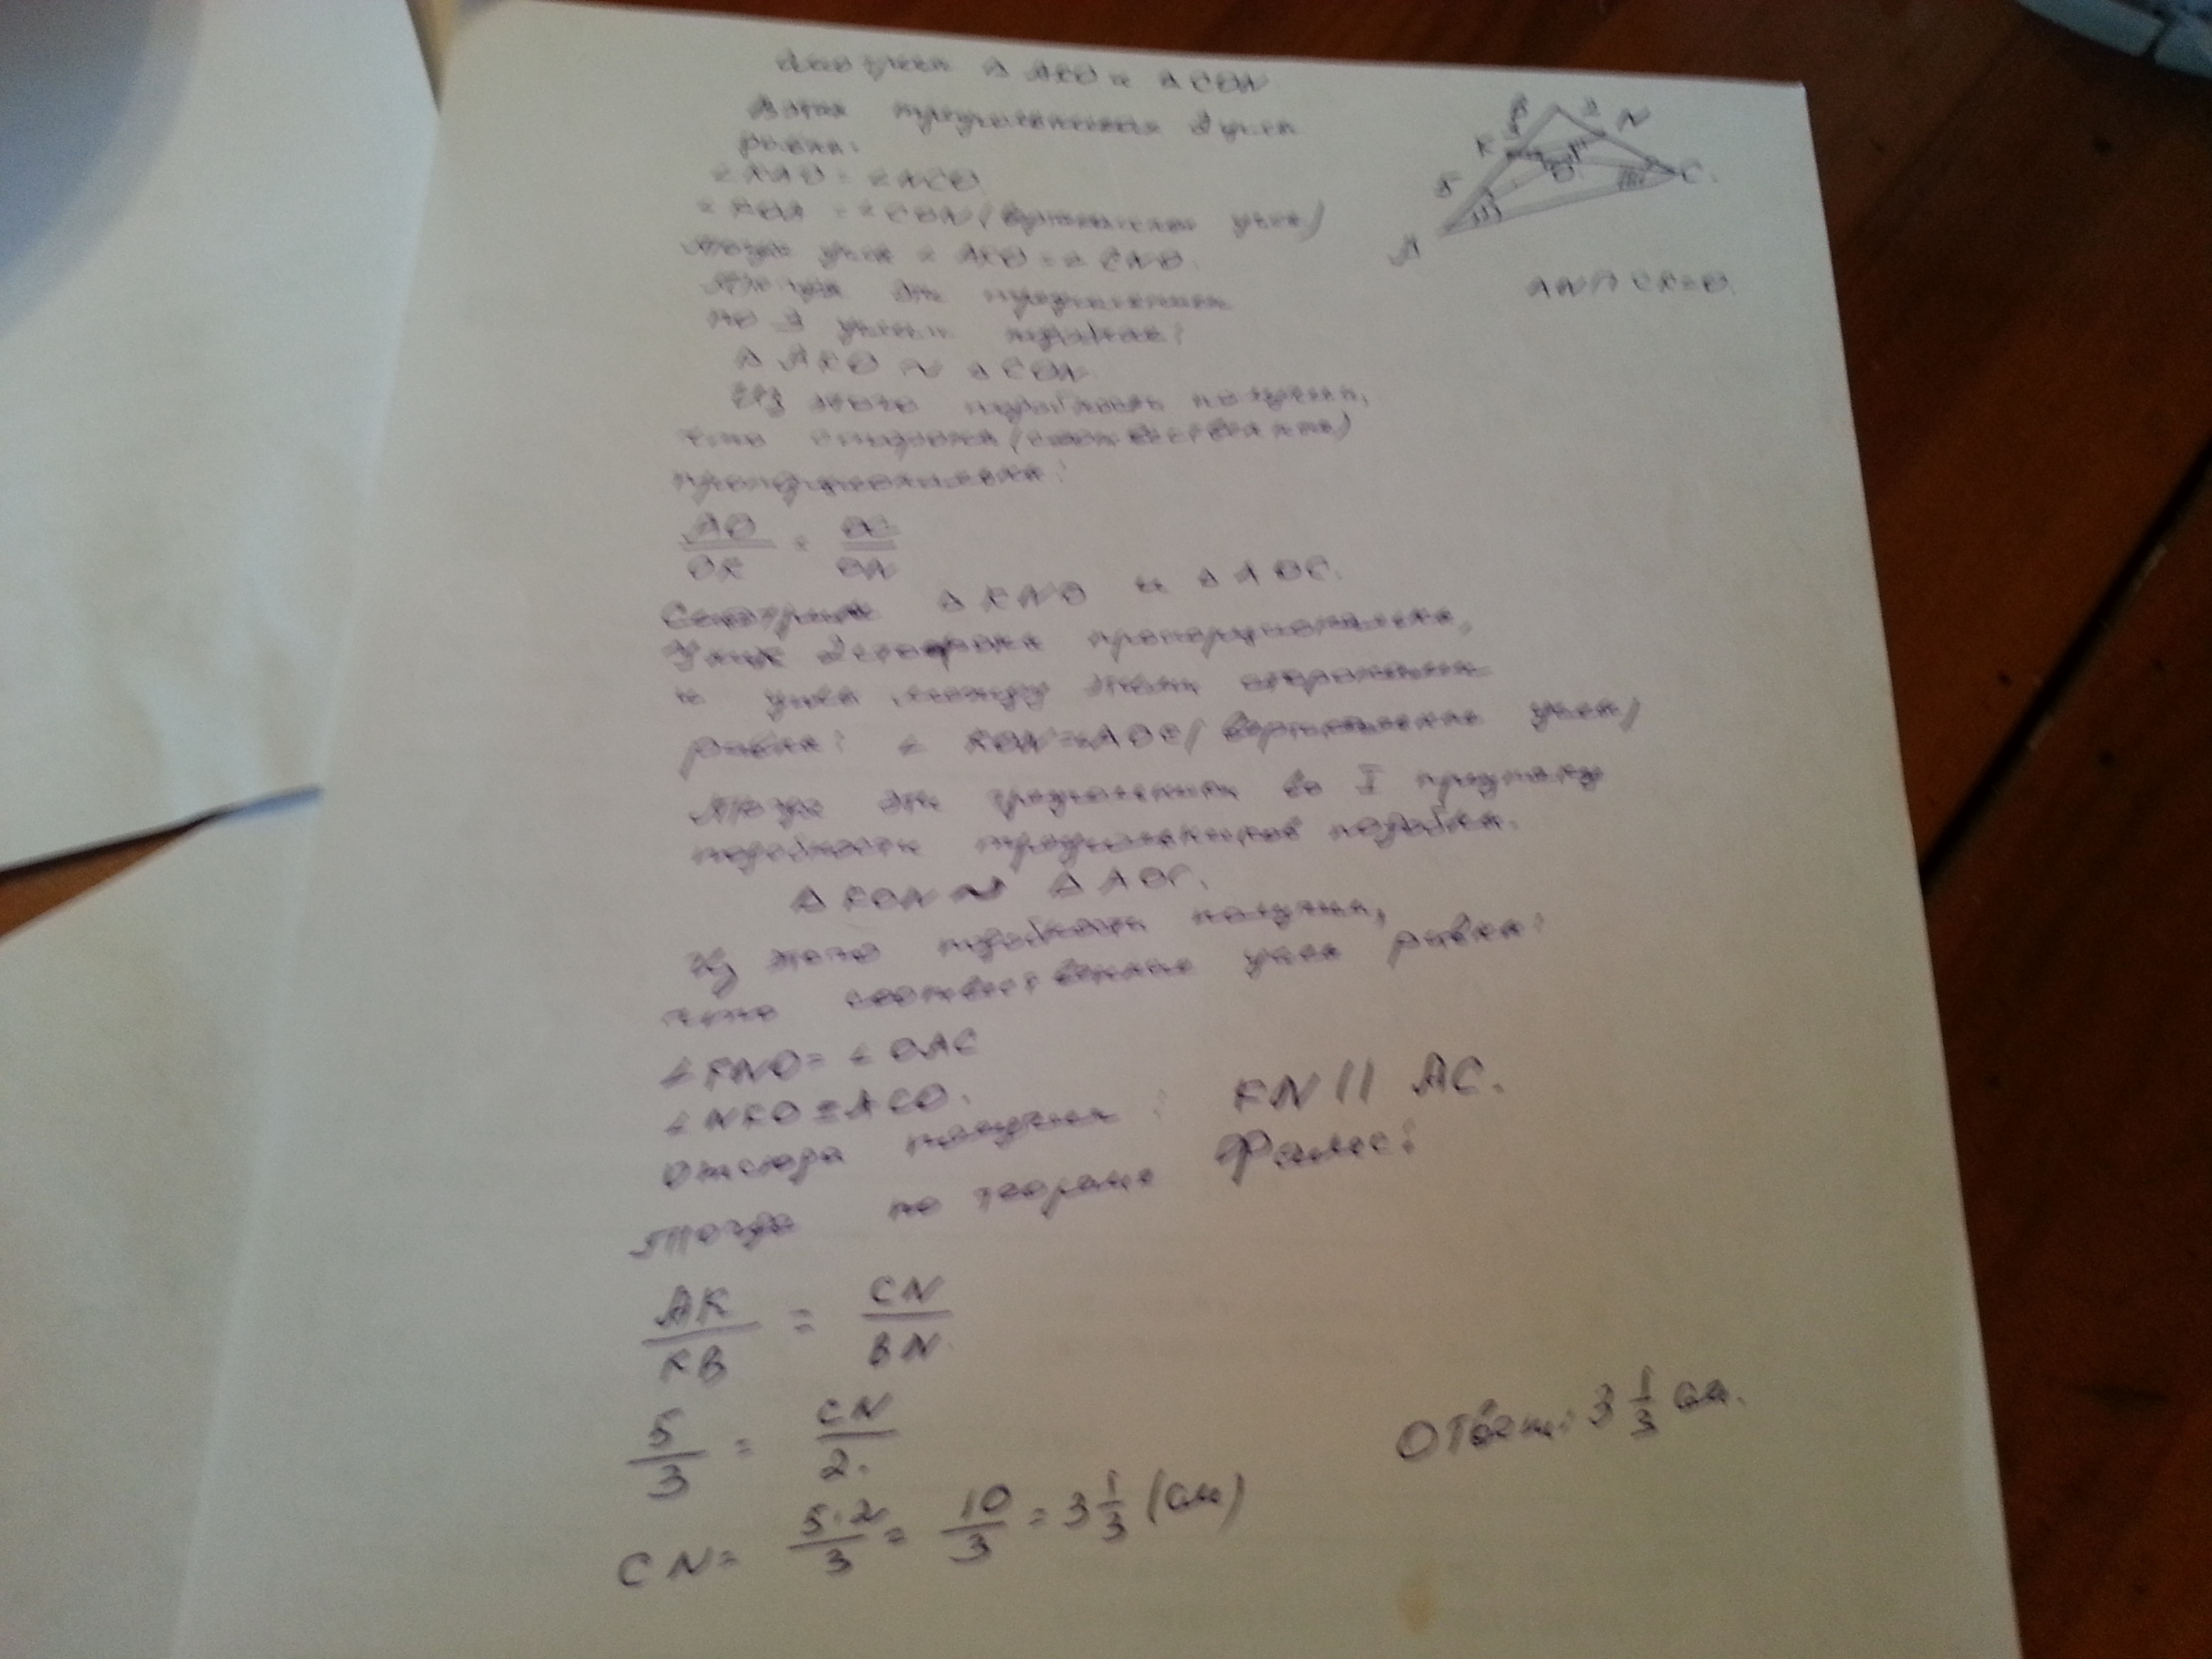 Смотрим ∆ AKO и ∆ CON
В этих треугольниках 2 угла
равны:
∠ KAO = ∠ NCO
∠ KOA = ∠ CON (вертикальные углы)
Тогда углы ∠ AKO = ∠ CNO.
Тогда эти треугольники
по 3 углам подобны:
∆ AKO ~ ∆ CON
Из этого подобности получим,
что стороны (соответственно)
пропорциональны:
AO/OK = OC/ON
Смотрим ∆ KNO и ∆ AOC.
У них 2 стороны пропорциональны,
и углы между этими сторонами
равны: ∠ KON = AOC (вертикальные углы)
Тогда эти треугольники по I признаку
подобности треугольников подобны.
∆ KON ~ ∆ AOC.
Из этого подобности получим,
что соответственные углы равны:
∠ KNO = ∠ OAC
∠ NKO = ACO.
Отсюда получим: KN || AC.
Тогда по теореме Фалес:
AK/KB = CN/BN
5/3 = CN/2.
CN = 5·2/3 = 10/3 = 3 1/3 (см)
Ответ: 3 1/3 см.
B
2
N
K
5
O
C.
A
AN ∩ CK = O.